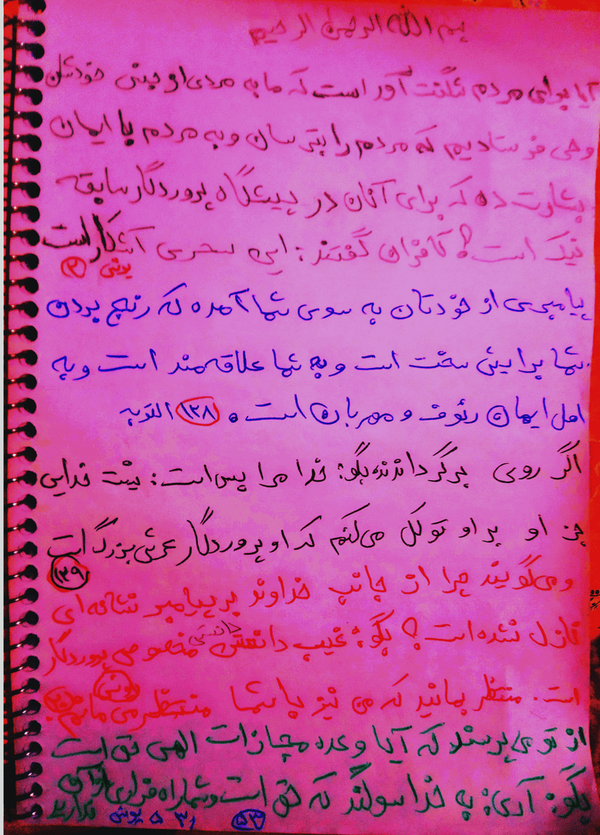 بسم الله الرحمن الرحیم
آیا برای مردم شگفت آور است که ما به مردی از جنس خودشان
وحی فرستادیم که مردم را بترسان و به مردم با ایمان
بشارت ده که برای آنان در پیشگاه پروردگار سابقه
نیک است؟ کافران گفتند: این سحری آشکار است
یونس ۲
پیامبری از خودتان به سوی شما آمده که رنج بردن
شما برایش سخت است و به شما علاقه‌مند است و به
اهل ایمان رئوف و مهربان است. ۱۲۸ التوبه
اگر روی برگرداندند بگو: خدا مرا بس است: نیست خدایی
جز او بر او توکل می‌کنم که او پروردگار عرش بزرگ است
۱۲۹
و می‌گویند چرا از جانب خداوند بر پیامبر نشانه‌ای
نازل نشده است؟ بگو: غیب دانستنش مخصوص پروردگار
است. منتظر بمانید که من نیز با شما منتظر می‌مانم. یونس
از تو می‌پرسند که آیا وعده مجازات الهی حق است
بگو: آری: به خدا سوگند که حق است و شما راه فراری از آن
ندارید ۵۳ یونس